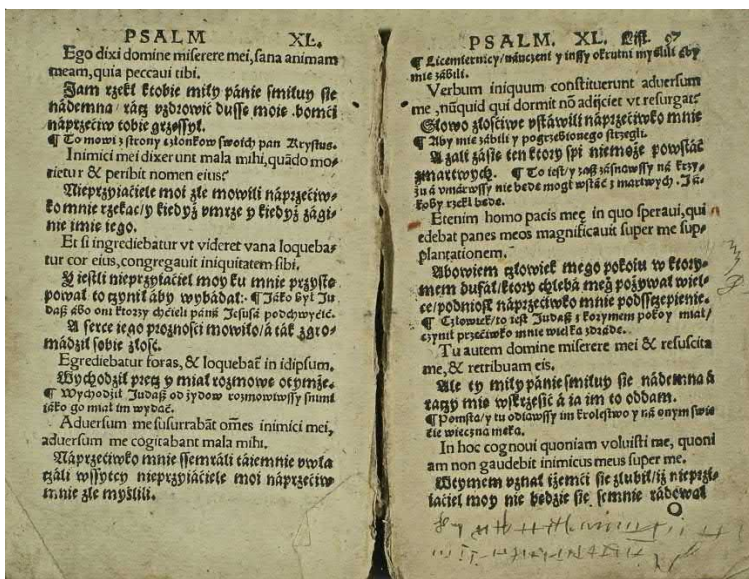 PSALM XL.
Ego dixi domine miserere mei, sana animam
meam, quia peccaui tibi.
Jam rzekł ktobie miły panie smiluy sie
nademna / racz vzdrowić dusse moie bomci
naprzeciw tobie grzessył.
¶ To mowi z strony członkow swoich pan Krystus.
Inimici mei dixerunt mala mihi, quãdo mo-
rietur & peribit nomen eius?
Nieprzyiaciele moi zle mowili naprzeciw-
ko mnie rzekac / y kiedyż vmrze y kiedyż zagi-
nie imie iego.
Et si ingrediebatur vt videret vana loqueba-
tur cor eius, congregauit iniquitatem sibi.
Y iestli nieprzyiaciel moy ku mnie przystę
pował to czynił aby wybadał: ¶ Jáko był Ju
dasz abo oni ktorzy chcieli páná Jesusá podchwycić.
A serce iego prozności mowiło / a tak zgro-
madził sobie złość.
Egrediebatur foras, & loquebat̃ in idipsum.
Wychodził precz y miał rozmowe otymże.
¶ Wychodził Judasz od żydow rozmowiwssy snimi
iáko go miał im wydáć.
Aduersum me susurrabãt om̃es inimici mei,
aduersum me cogitabant mala mihi.
Naprzeciwko mnie ssemrali taiemnie vwła
czali wssytcy nieprzyiaciele moi naprzeciw
mnie zle myslili.
PSALM. XL. List. 97
¶ Licemiernicy / náuczeni y inssy okrutni myslili áby
mie zábili.
Verbum iniquum constituerunt aduersum
me, nũquid qui dormit nõ adijciet vt resurgat?
Słowo złosciwe vstawili naprzeciwko mnie
¶ Aby mie zábili y pogrzebionego strzegli.
A zali zasie ten ktory spi niemoże powstać
zmartwych. ¶ To iest / y zaż zásnąwssy ná krzy-
żu á vmárwssy nie bede mogł wstáć z martwych. Já-
koby rzekł bede.
Etenim homo pacis meę in quo speraui, qui
edebat panes meos magnificauit super me sup-
plantationem.
Abowiem człowiek mego pokoiu w ktory-
mem dufał / ktory chleba meg̃ pożywał wiel-
ce / podniosł naprzeciwko mnie podsszczepienie.
¶ Człowiek / to iest Judasz z ktorymem pokoy miał /
czynił przećiwko mnie wielką zdrádę.
Tu autem domine miserere mei & resuscita
me, & retribuam eis.
Ale ty miły panie smiluy sie nademna á
raczy mie wskrzesić á ia im to oddam.
¶ Pomstá / y tu odiąwssy im krolestwo y ná onym świe
cie wieczna męká.
In hoc cognoui quoniam voluisti me, quoni
am non gaudebit inimicus meus super me.
Wtymem vznał iżemci sie zlubił / iż nieprzi-
iaciel moy nie będzie się semnie radował